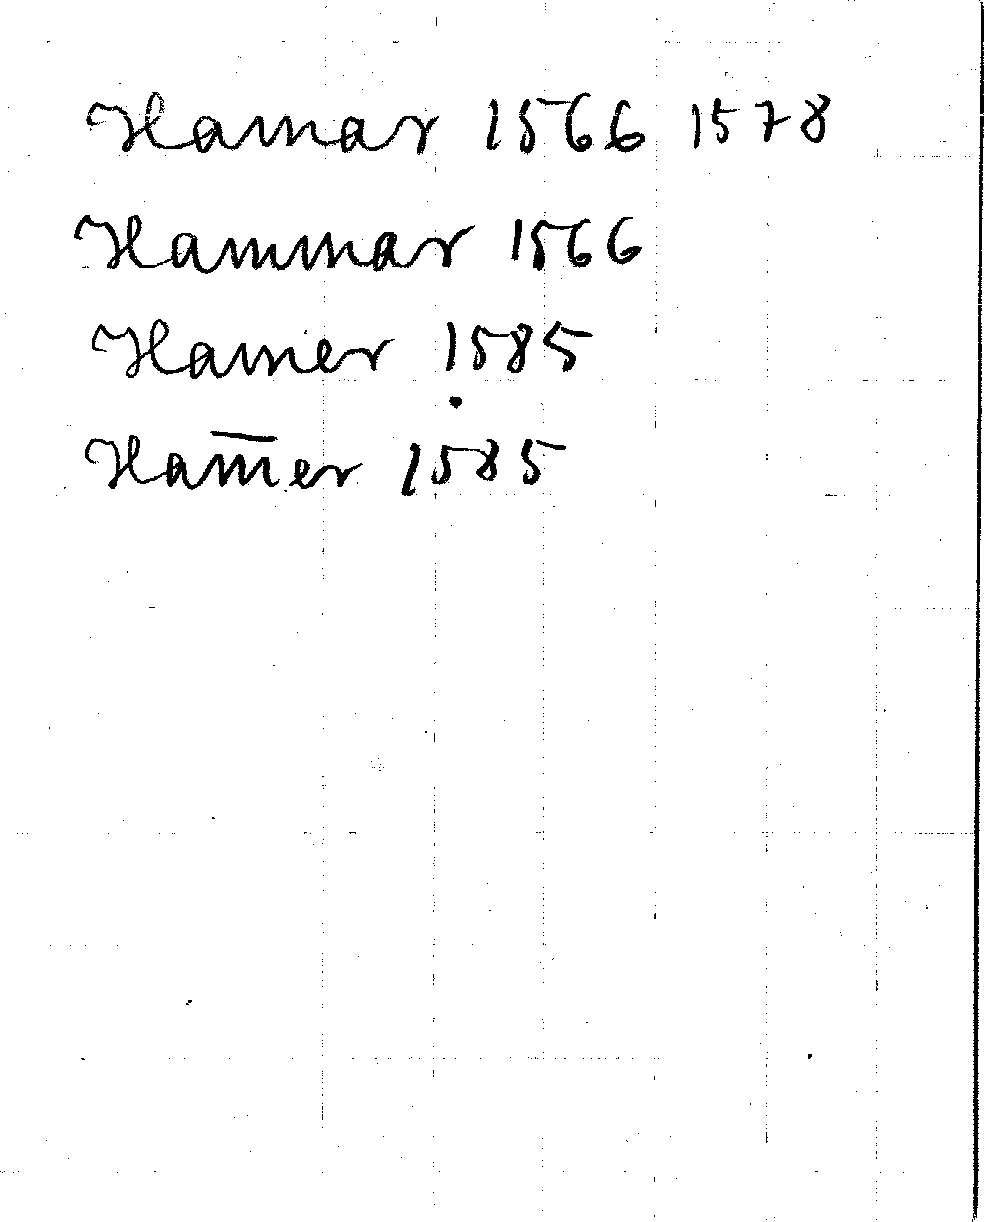 Hamar 1566 1578
Hammar 1566
Hamer 1585
Ham̅er 1585